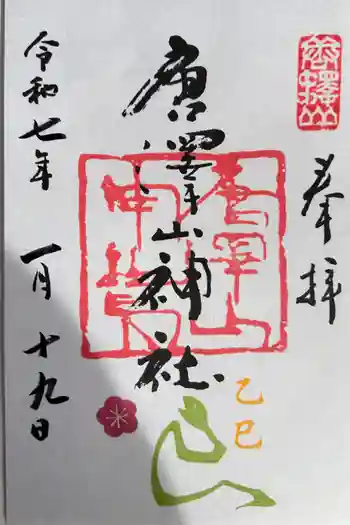 奉拝
唐澤山
唐澤山神社
乙巳
令和七年 一月十九日